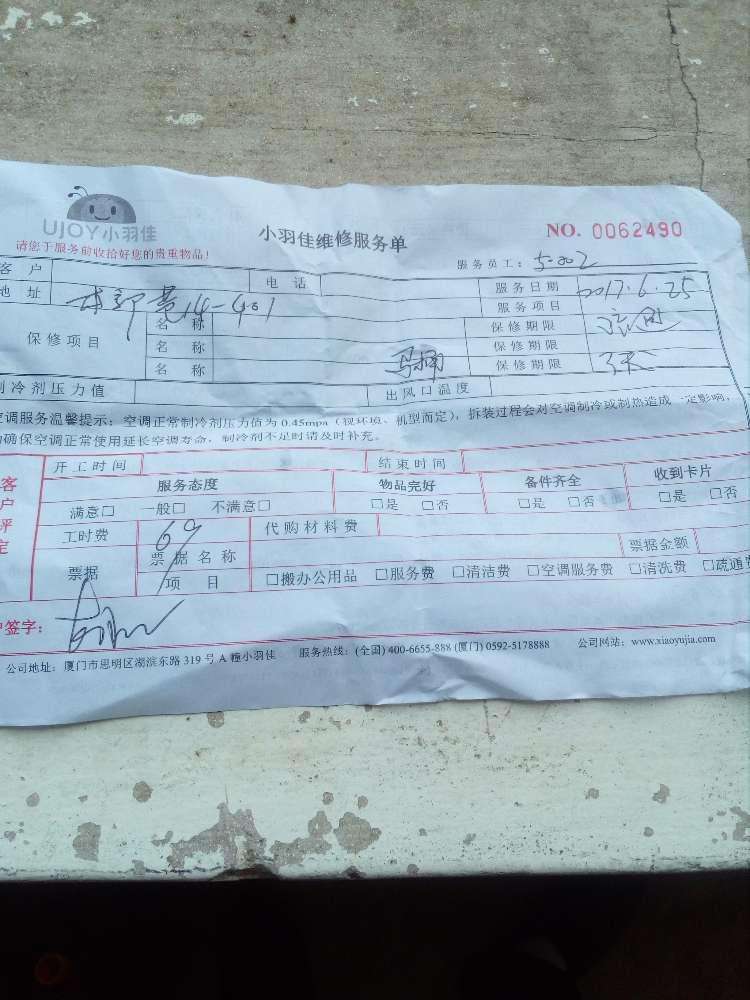 UJOY小羽佳
小羽佳维修服务单
NO. 0062490
请您于服务前收拾好您的贵重物品！
服务员工：5-002
客 户
电 话
服务日期 2017.6.25
地 址 14-401
服务项目
保修项目
名 称
保修期限
名 称
保修期限
名 称 马桶
保修期限
制冷剂压力值
出风口温度
空调服务温馨提示：空调正常制冷剂压力值为 0.45mpa（视环境、机型而定），拆装过程会对空调制冷或制热造成一定影响，
为确保空调正常使用延长空调寿命，制冷剂不足时请及时补充。
客户评定
开工时间
结束时间
服务态度
物品完好
备件齐全
收到卡片
满意□ 一般□ 不满意□
□是 □否
□是 □否
□是 □否
工时费 69
代购材料费
票据
票据名称
票据金额
项 目
□搬办公用品 □服务费 □清洁费 □空调服务费 □清洗费 □疏通费
户签字：
公司地址：厦门市思明区湖滨东路 319 号 A 幢小羽佳 服务热线：(全国) 400-6655-888 (厦门) 0592-5178888 公司网站：www.xiaoyujia.com